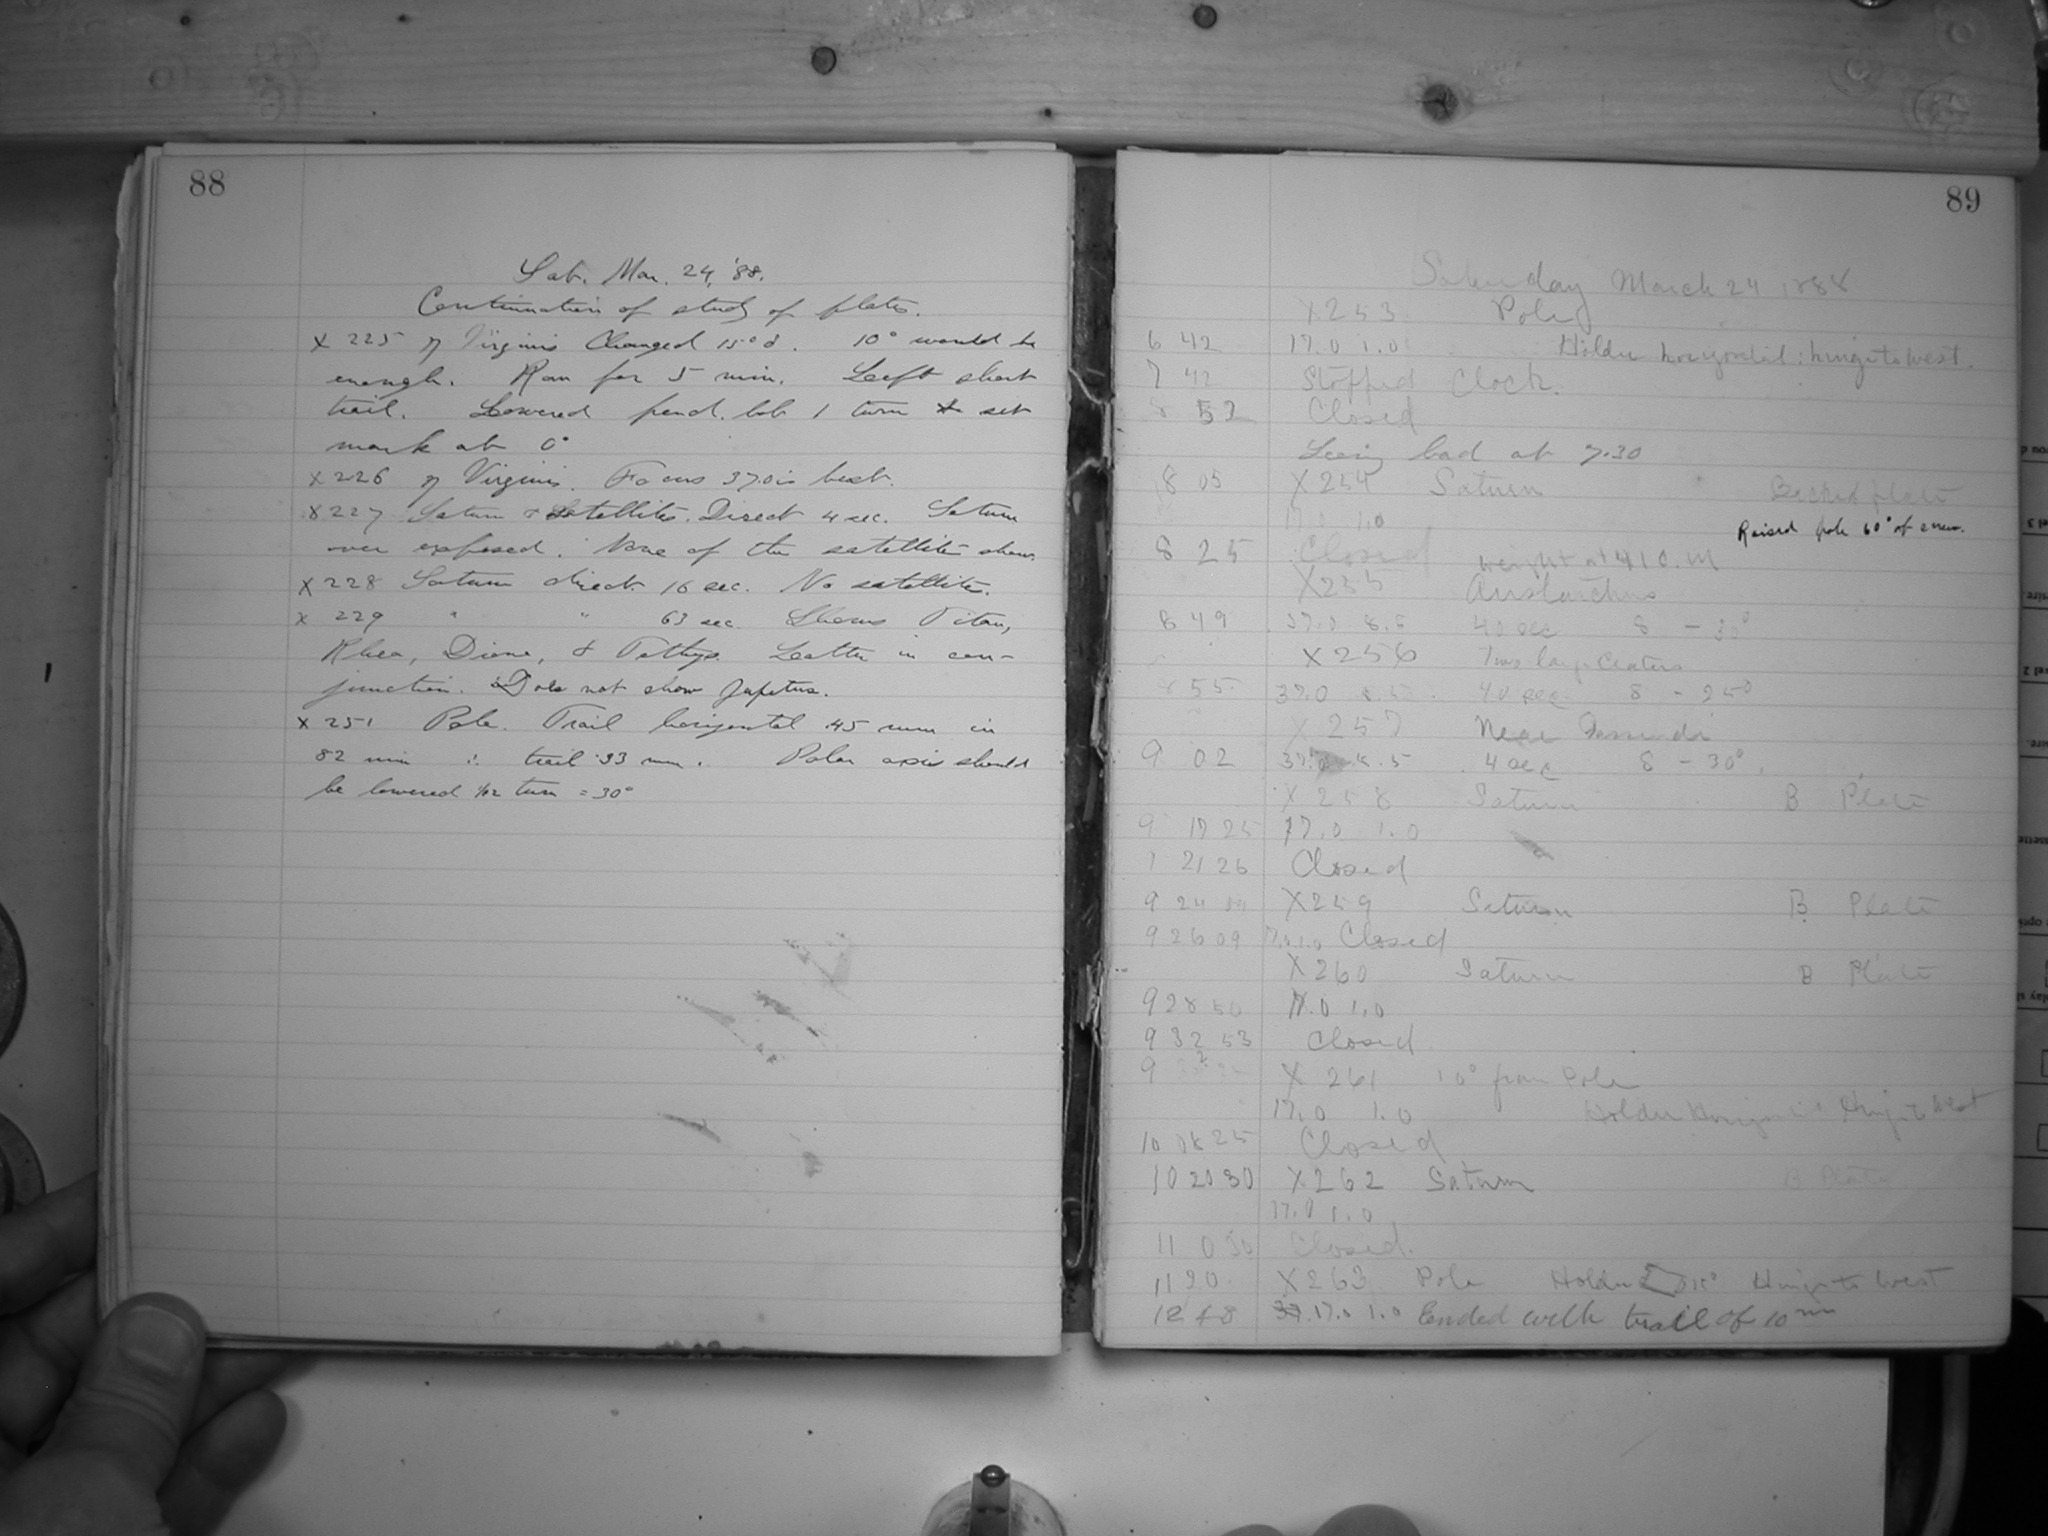 88
Sat. Mar. 24, '88.
Continuation of study of plates.
X 225 η Virginis Changed 15° d. 10° would be
enough. Ran for 5 min. Left short
trail. Lowered pend. bob 1 turn & set
mark at 0°
X 226 η Virginis. Focus 37.0 is best.
X 227 Saturn & Satellites. Direct 4 sec. Saturn
over exposed. None of the satellites show.
X 228 Saturn direct 16 sec. No satellites.
X 229 " " 63 sec. Shows Titan,
Rhea, Dione, & Tethys. Latter in con-
junction. Does not show Japetus.
X 251 Pole. Trail horizontal .45 mm in
82 min ∴ trail .33 mm. Polar axis should
be lowered 1/12 turn = 30°
89
Saturday March 24 1888
X253 Pole
6 42 17.0 1.0 Holder horizontal: hinge to west.
7 42 Stopped Clock.
8 52 Closed
Seeing bad at 7.30
8 05 X254 Saturn Backed plate
17.0 1.0 Raised pole 60° of screw.
8 25 Closed weight at 410. m
X255 Aristarchus
8 49 37.0 8.5 40 sec 8 - 30°
X256 Two large Craters
8 55 37.0 8.5 40 sec 8 - 25°
X257 Near Gassendi
9 02 37.0 8.5 4 sec 8 - 30°
X258 Saturn B Plate
9 17 25 17.0 1.0
21 26 Closed
9 24 X259 Saturn B Plate
9 26 09 17.0 1.0 Closed
X260 Saturn B Plate
9 28 50 17.0 1.0
9 32 53 Closed
9 X 261 10° from Pole
17.0 1.0 Holder Horizontal Hinge to West
10 18 25 Closed
10 20 30 X262 Saturn B Plate
17.0 1.0
11 0 30 Closed.
11 20 X263 Pole Holder Hinge to West
12 48 17.0 1.0 Ended with trail of 10 m